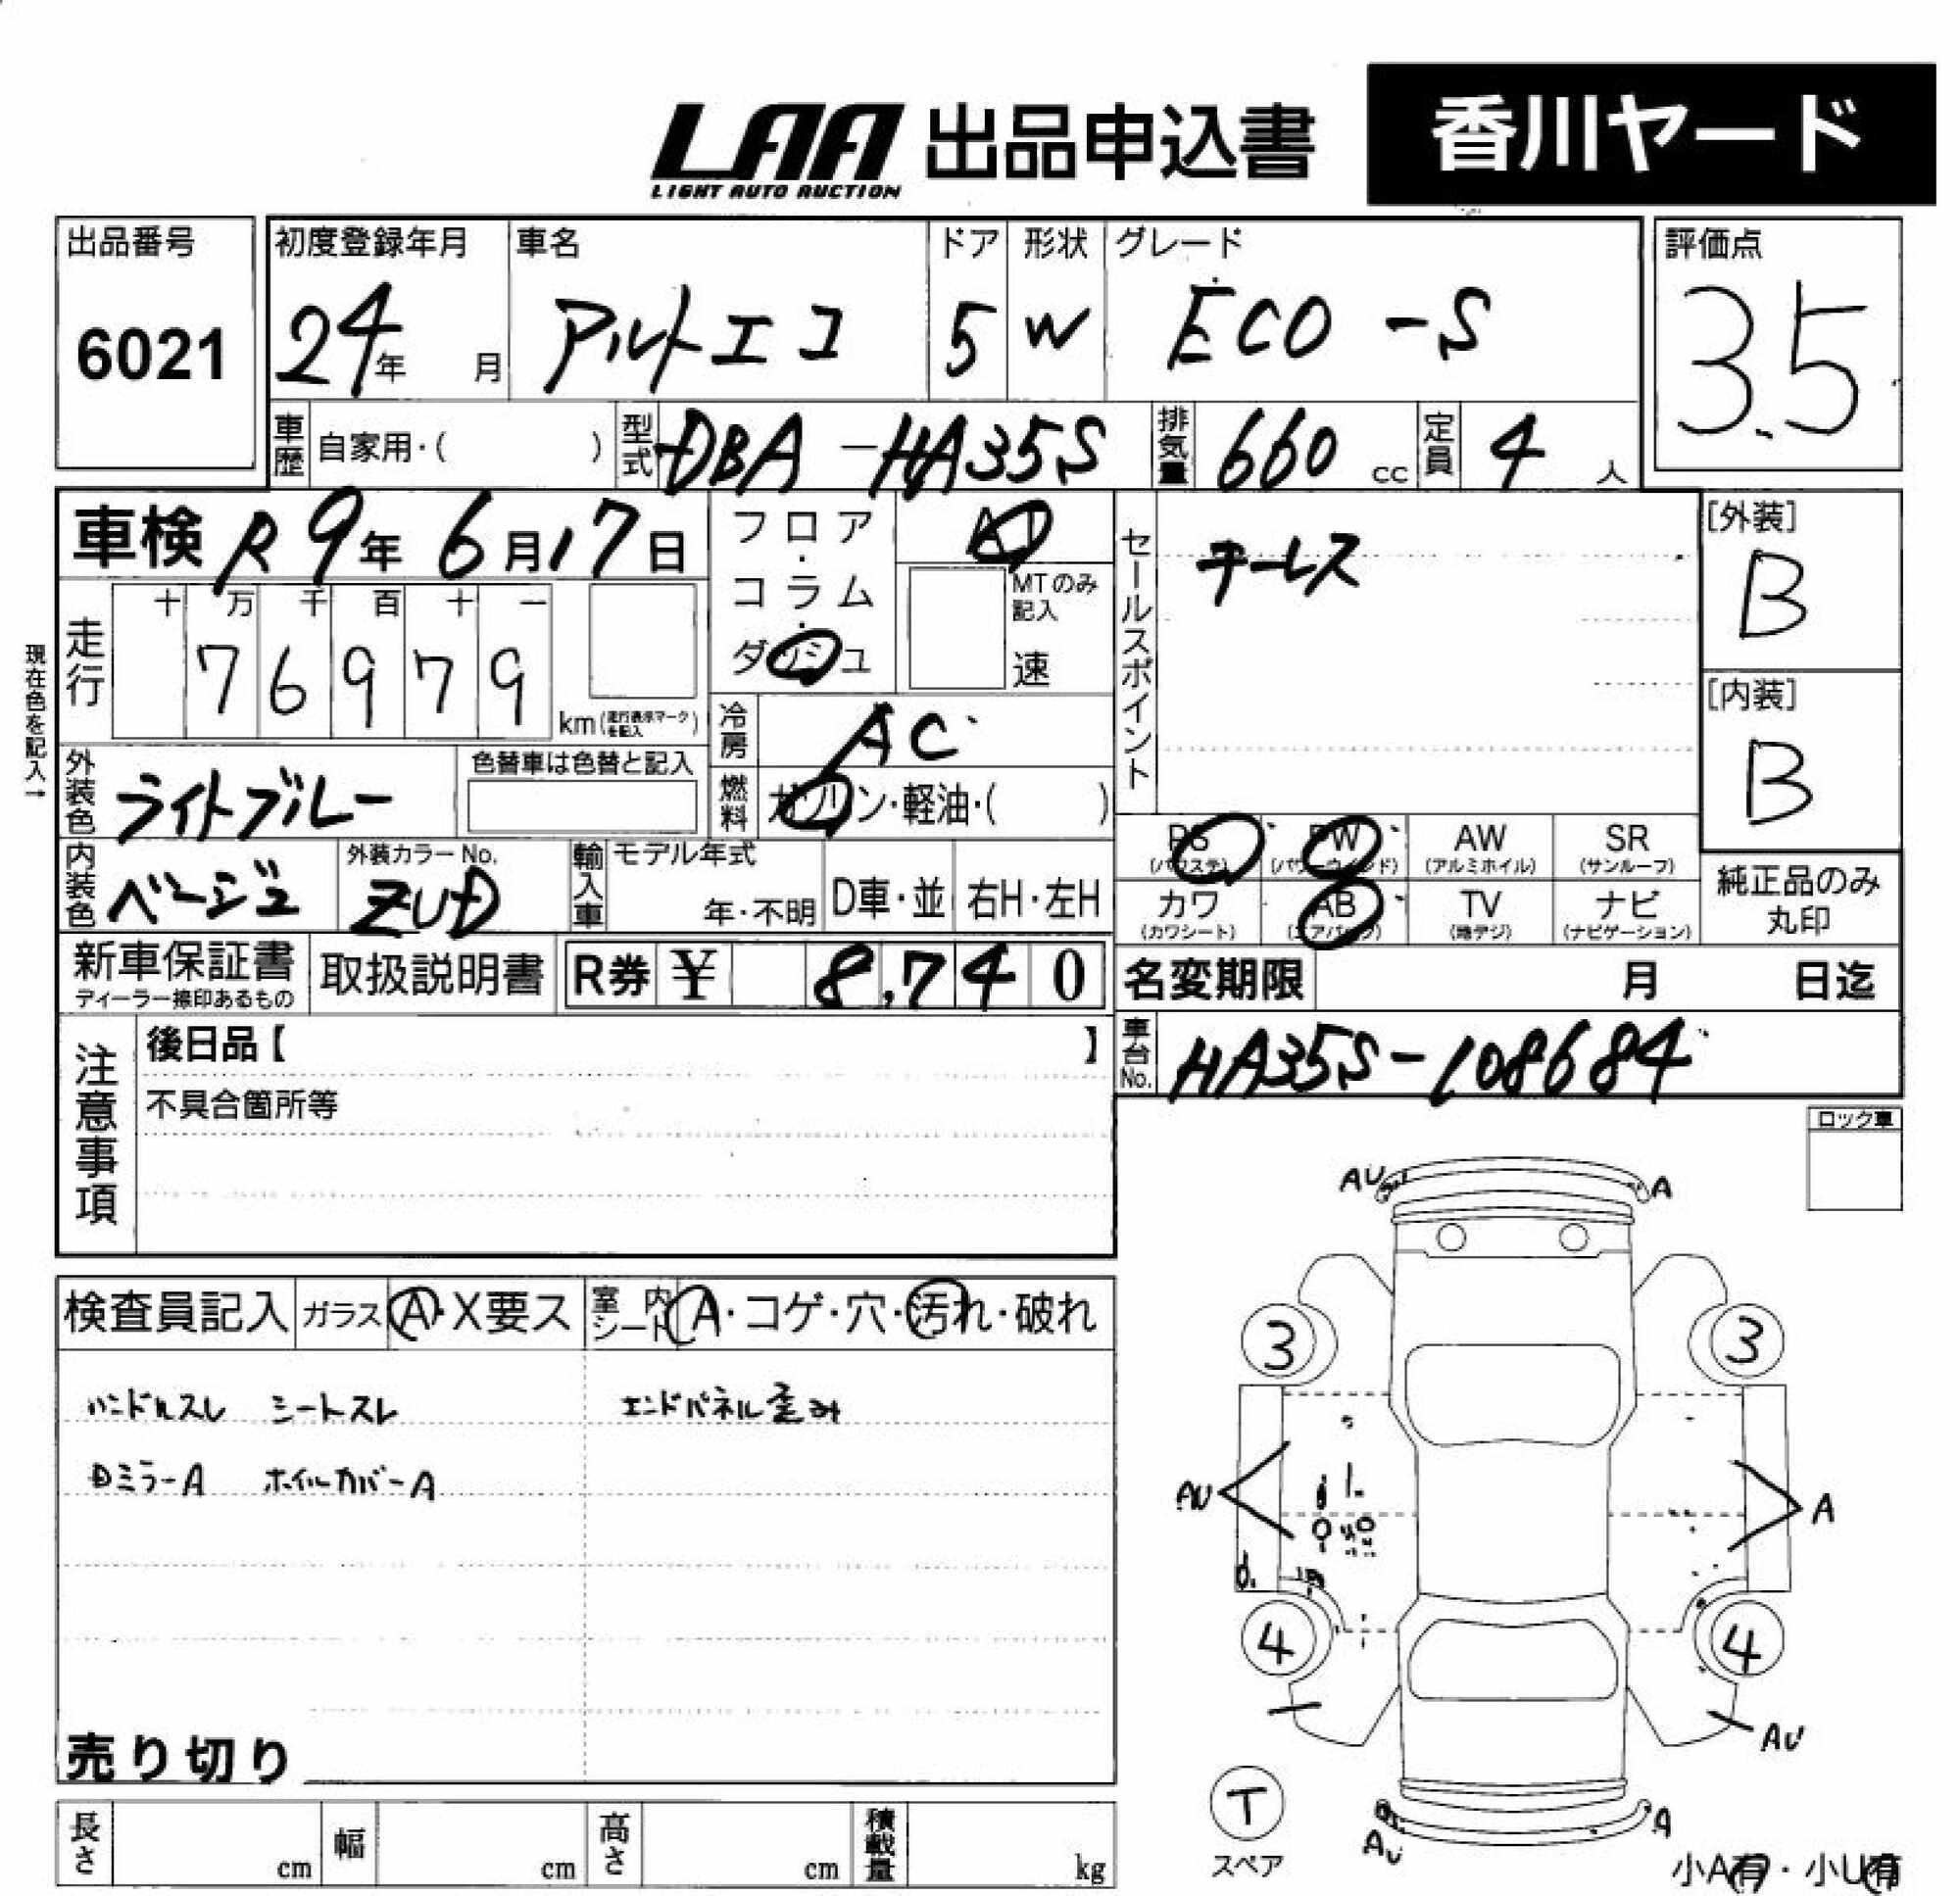 LAA
LIGHT AUTO AUCTION
出品申込書
香川ヤード
出品番号
6021
初度登録年月
24年 月
車名
アルトエコ
ドア
5
形状
W
グレード
ECO-S
評価点
3.5
車歴 自家用・( )
型式 DBA-HA35S
排気量 660 cc
定員 4 人
車検 R9年 6月17日
フロア・コラム・ダッシュ
AT
MTのみ記入
速
セールスポイント
キーレス
[外装]
B
[内装]
B
現在色を記入→
走行
十 万 千 百 十 一
7 6 9 7 9
km(走行表示マークを記入)
冷房 AC
燃料 ガソリン・軽油・( )
外装色 ライトブルー
色替車は色替と記入
内装色 ベージュ
外装カラーNo.
ZUD
輸入車
モデル年式
年・不明
D車・並
右H・左H
PS (パワステ)
PW (パワーウインド)
AW (アルミホイル)
SR (サンルーフ)
カワ (カワシート)
AB (エアバック)
TV (地デジ)
ナビ (ナビゲーション)
純正品のみ丸印
新車保証書
ディーラー捺印あるもの
取扱説明書
R券 ¥ 8,740
名変期限 月 日迄
車台No. HA35S-108684
注意事項
後日品【 】
不具合箇所等
ロック車
検査員記入
ガラス A・X要ス
室内シート A・コゲ・穴・汚れ・破れ
ハンドルスレ シートスレ エンドパネル歪み
DミラーA ホイルカバーA
売り切り
長さ cm
幅 cm
高さ cm
積載量 kg
AU A
3 3
AU A
4 4
AU
T
スペア
AU A
小A有・小U有